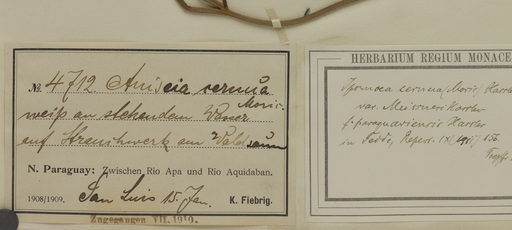 № 4712. Aniseia cernua
Moric.
weiß an stehendem Wasser
auf Strauchwerk am Waldsaum
N. Paraguay: Zwischen Rio Apa und Rio Aquidaban.
1908/1909. San Luis 15. Jan. K. Fiebrig.
Zugegangen VII. 1910.
HERBARIUM REGIUM MONACE
Ipomoea cernua (Moric.) Hassler
var. Meissneri Hassler
f. paraguariensis Hassler
in Fedde, Repert. IX (1911) 156